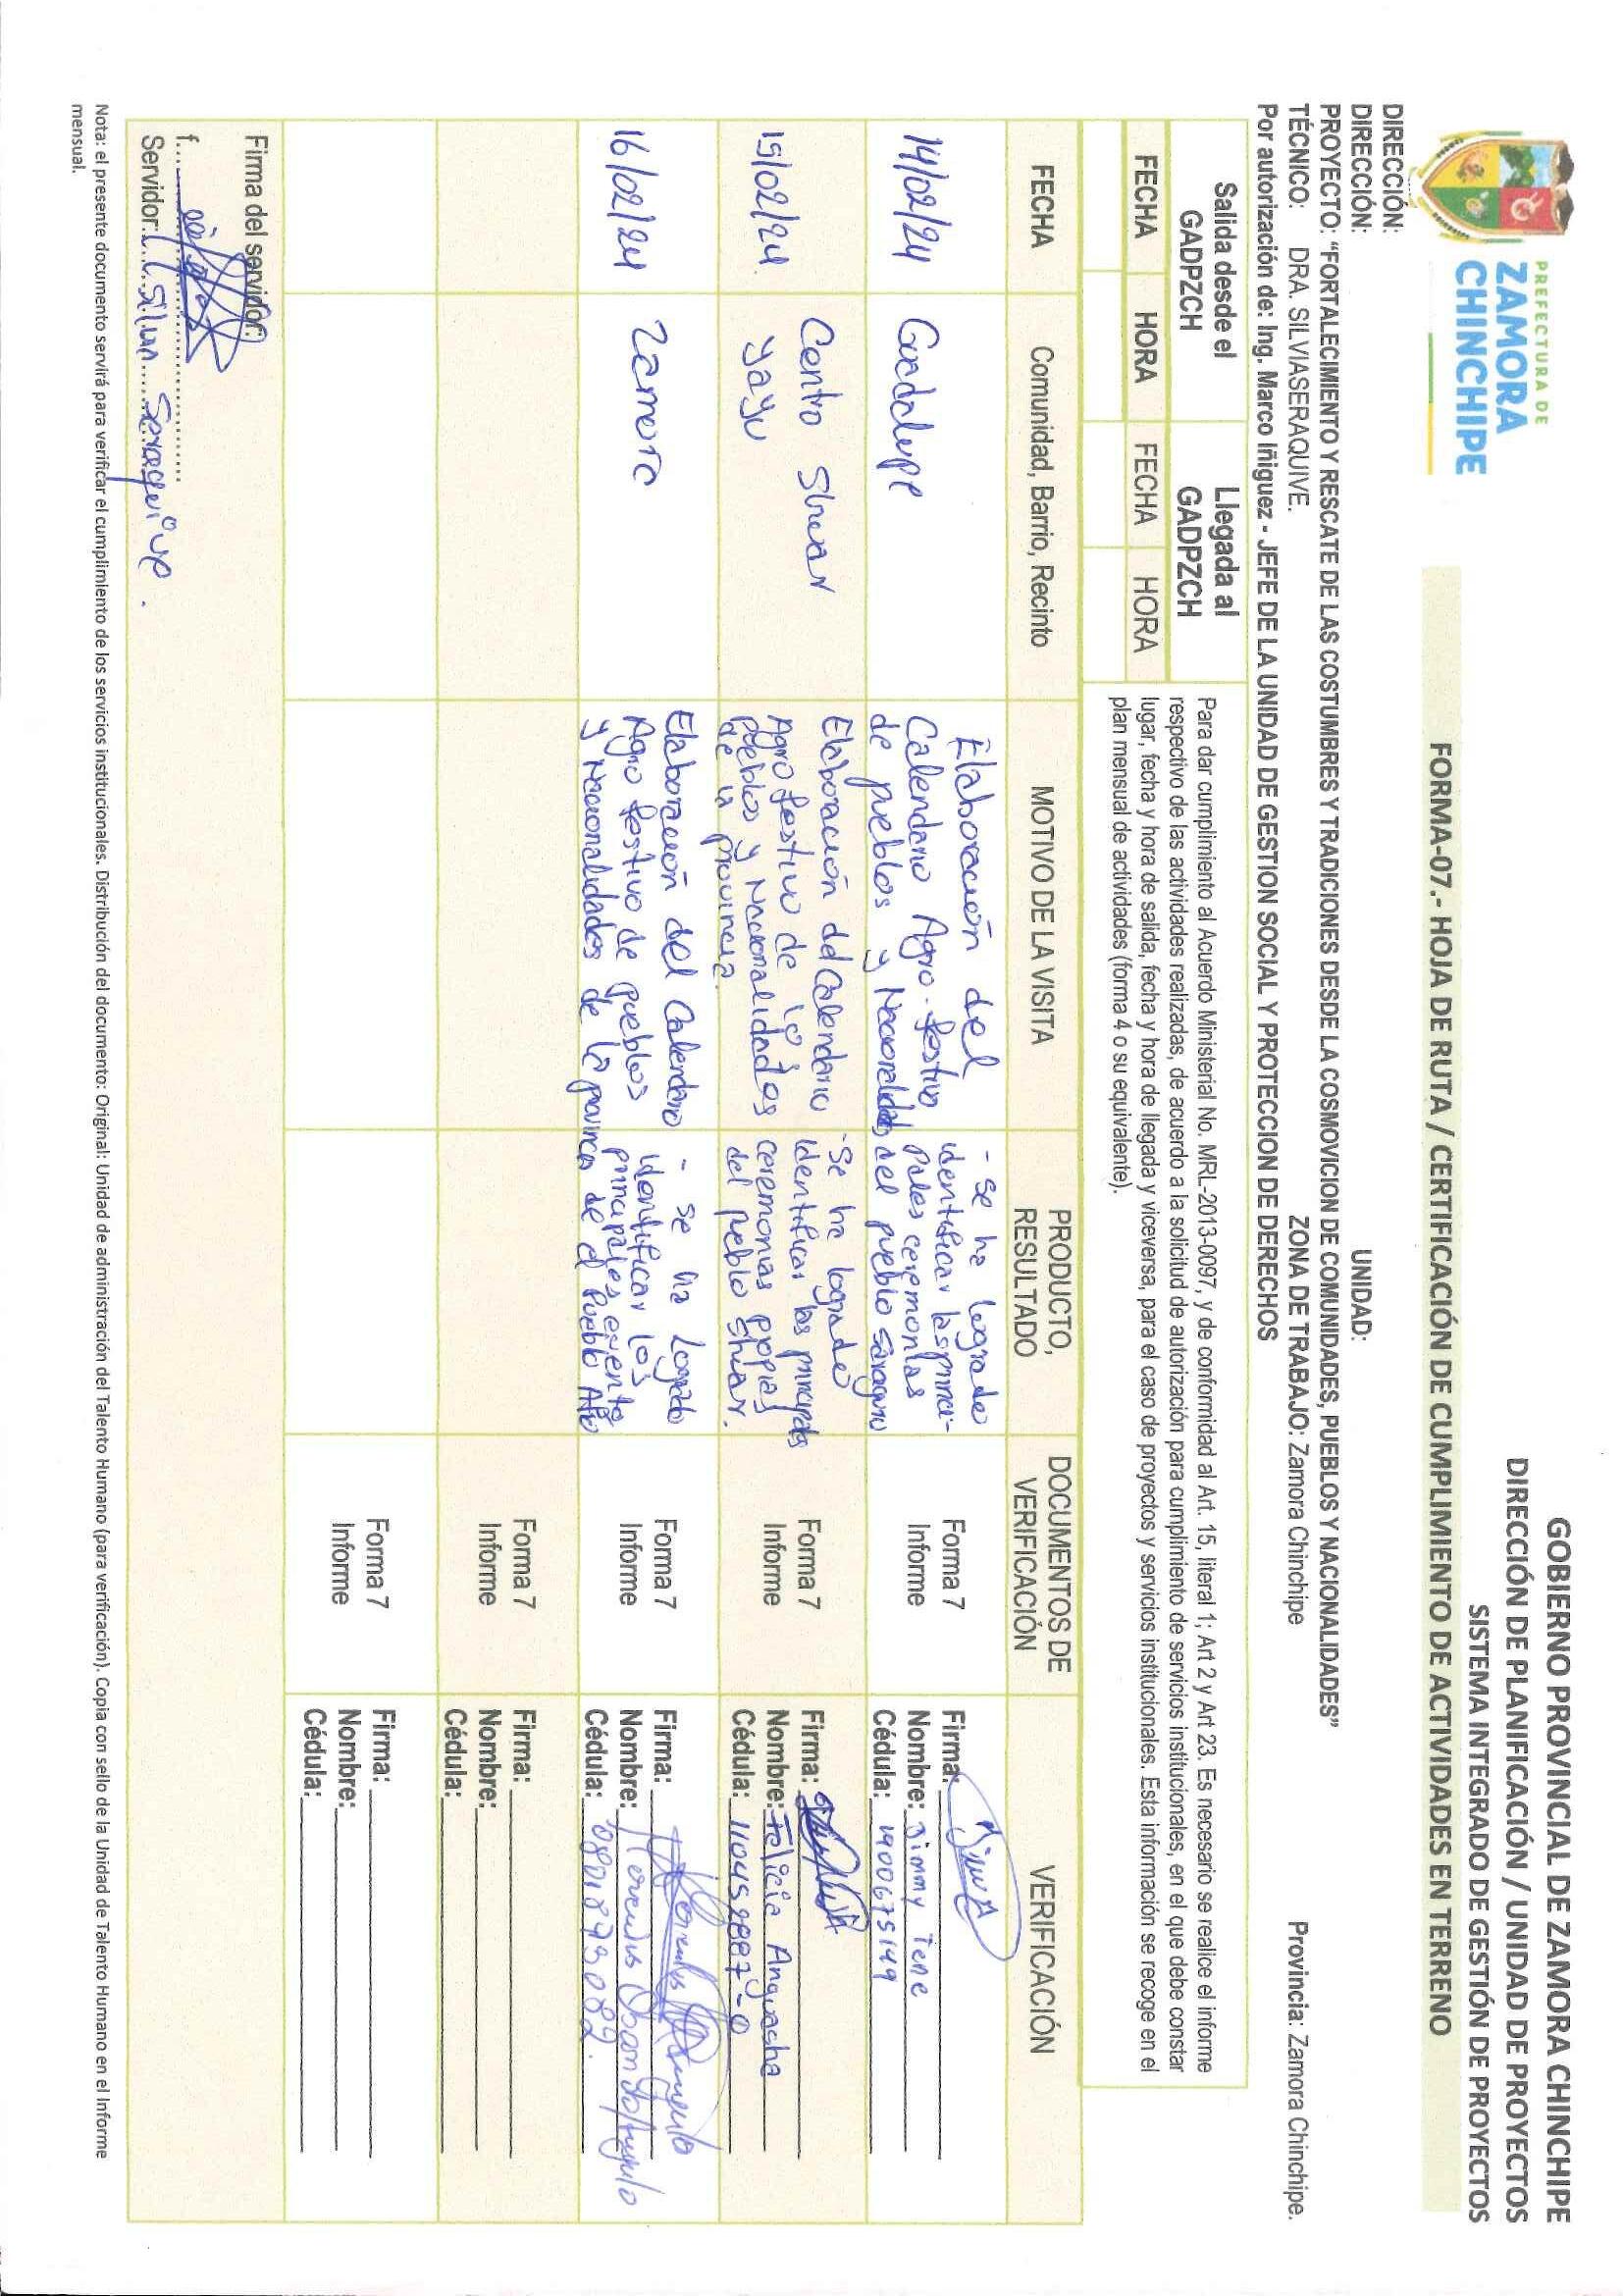 PREFECTURA DE
ZAMORA
CHINCHIPE
GOBIERNO PROVINCIAL DE ZAMORA CHINCHIPE
DIRECCIÓN DE PLANIFICACIÓN / UNIDAD DE PROYECTOS
SISTEMA INTEGRADO DE GESTIÓN DE PROYECTOS
FORMA-07.- HOJA DE RUTA / CERTIFICACIÓN DE CUMPLIMIENTO DE ACTIVIDADES EN TERRENO
DIRECCIÓN:
DIRECCIÓN: UNIDAD:
PROYECTO: “FORTALECIMIENTO Y RESCATE DE LAS COSTUMBRES Y TRADICIONES DESDE LA COSMOVICION DE COMUNIDADES, PUEBLOS Y NACIONALIDADES”
TÉCNICO: DRA. SILVIASERAQUIVE. ZONA DE TRABAJO: Zamora Chinchipe Provincia: Zamora Chinchipe.
Por autorización de: Ing. Marco Iñiguez - JEFE DE LA UNIDAD DE GESTION SOCIAL Y PROTECCION DE DERECHOS
Salida desde el GADPZCH
Llegada al GADPZCH
FECHA HORA FECHA HORA
Para dar cumplimiento al Acuerdo Ministerial No. MRL-2013-0097, y de conformidad al Art. 15, literal 1; Art 2 y Art 23. Es necesario se realice el informe
respectivo de las actividades realizadas, de acuerdo a la solicitud de autorización para cumplimiento de servicios institucionales, en el que debe constar
lugar, fecha y hora de salida, fecha y hora de llegada y viceversa, para el caso de proyectos y servicios institucionales. Esta información se recoge en el
plan mensual de actividades (forma 4 o su equivalente).
FECHA
Comunidad, Barrio, Recinto
MOTIVO DE LA VISITA
PRODUCTO,
RESULTADO
DOCUMENTOS DE
VERIFICACIÓN
VERIFICACIÓN
14/02/24
Guadalupe
Elaboración del
Calendario Agro-festivo
de pueblos y Nacionalidades
- Se ha logrado
identificar las princi-
pales ceremonias
del pueblo saraguro
Forma 7
Informe
Firma:
Nombre: Jimmy Tene
Cédula: 1900675149
15/02/24
Centro Shuar
Yayu
Elaboración del Calendario
Agro festivo de los
pueblos y Nacionalidades
de la provincia.
- Se ha logrado
identificar las principales
ceremonias propias
del pueblo shuar.
Forma 7
Informe
Firma:
Nombre: Felicia Anguasha
Cédula: 110459887-0
16/02/24
Zamora
Elaboración del Calendario
Agro festivo de pueblos
y Nacionalidades de la provincia
- Se ha logrado
identificar los
principales evento
de el Pueblo Afro
Forma 7
Informe
Firma:
Nombre:
Cédula: 0801873082.
Forma 7
Informe
Firma:
Nombre:
Cédula:
Forma 7
Informe
Firma:
Nombre:
Cédula:
Firma del servidor:
f.
Servidor: Silvia Seraquive.
Nota: el presente documento servirá para verificar el cumplimiento de los servicios institucionales. Distribución del documento: Original: Unidad de administración del Talento Humano (para verificación). Copia con sello de la Unidad de Talento Humano en el Informe
mensual.